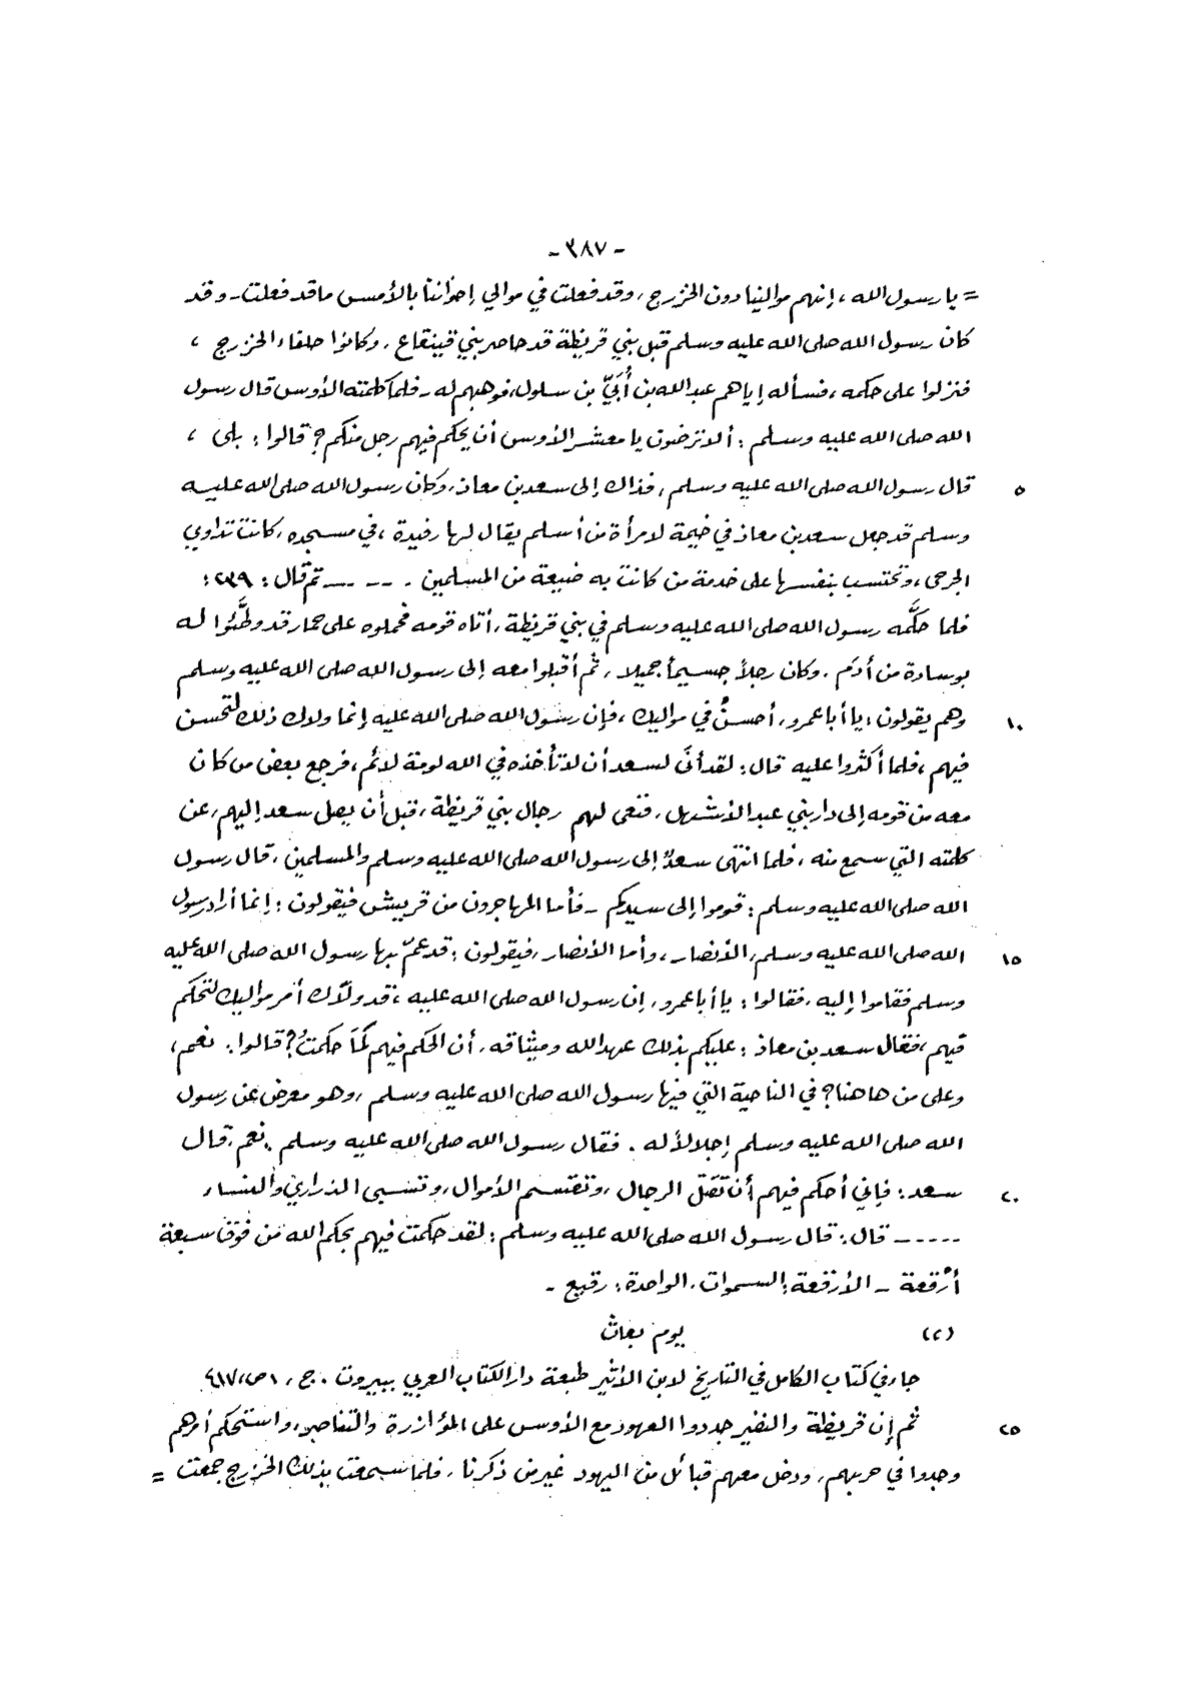 - ٣٨٧ -
= يا رسول الله ، إنهم موالينا دون الخزرج ، وقد فعلت في موالي إخواننا بالأمس ما قد فعلت - وقد
كان رسول الله صلى الله عليه وسلم قبل بني قريظة قد حاصر بني قينقاع ، وكانوا حلفاء الخزرج ،
فنزلوا على حكمه ، فسأله إياهم عبد الله بن أُبَيّ بن سلول، فوهبهم له - فلما كلمته الأوس قال رسول
الله صلى الله عليه وسلم : ألا ترضون يا معشر الأوس أن يحكم فيهم رجل منكم ؟ قالوا : بلى ،
٥ قال رسول الله صلى الله عليه وسلم ، فذاك إلى سعد بن معاذ. وكان رسول الله صلى الله عليه
وسلم قد جعل سعد بن معاذ في خيمة لامرأة من أسلم يقال لها رفيدة ، في مسجده ، كانت تداوي
الجرحى ، وتحتسب بنفسها على خدمة من كانت به ضيعة من المسلمين . - - --- ثم قال : ٢٣٩ :
فلما حكَّمه رسول الله صلى الله عليه وسلم في بني قريظة ، أتاه قومه فحملوه على حمار قد وطَّئوا له
بوسادة من أدَم . وكان رجلاً جسيماً جميلا ، ثم أقبلوا معه إلى رسول الله صلى الله عليه وسلم
١٠ وهم يقولون : يا أبا عمرو ، أحسنْ في مواليك ، فإن رسول الله صلى الله عليه إنما ولاك ذلك لتحسن
فيهم ، فلما أكثروا عليه قال : لقد أنَى لسعد أن لا تأخذه في الله لومة لائم ، فرجع بعض من كان
معه من قومه إلى دار بني عبد الأشهل ، فنعى لهم رجال بني قريظة ، قبل أن يصل سعد إليهم ، عن
كلمته التي سمع منه ، فلما انتهى سعدٌ إلى رسول الله صلى الله عليه وسلم والمسلمين ، قال رسول
الله صلى الله عليه وسلم : قوموا إلى سيدكم - فأما المهاجرون من قريش فيقولون : إنما أراد رسول
١٥ الله صلى الله عليه وسلم ، الأنصار ، وأما الأنصار ، فيقولون : قد عمّ بها رسول الله صلى الله عليه
وسلم فقاموا إليه ، فقالوا : يا أبا عمرو ، إن رسول الله صلى الله عليه ، قد ولّاك أمر مواليك لتحكم
فيهم ، فقال سعد بن معاذ : عليكم بذلك عهد الله وميثاقه ، أن الحكم فيهم لَمَا حكمتُ ؟ قالوا : نعم ،
وعلى من هاهنا ؟ في الناحية التي فيها رسول الله صلى الله عليه وسلم ، وهو معرض عن رسول
الله صلى الله عليه وسلم إجلالاً له . فقال رسول الله صلى الله عليه وسلم : نعم ، قال
٢٠ سعد : فإني أحكم فيهم أن تُقتل الرجال ، وتقتسم الأموال ، وتسبى الذراري والنساء
- - - - - قال : قال رسول الله صلى الله عليه وسلم : لقد حكمت فيهم بحكم الله من فوق سبعة
أرْقعة - الأرقعة : السموات ، الواحدة : رقيع -
(٢) يوم بعاث
جاء في كتاب الكامل في التاريخ لابن الأثير طبعة دار الكتاب العربي ببيروت . ج ، ١ ص، ٤١٧
٢٥ ثم إن قريظة والنضير جددوا العهود مع الأوس على المؤازرة والتناصر ، واستحكم أمرهم
وجدوا في حربهم ، ودخل معهم قبائل من اليهود غير من ذكرنا ، فلما سمعت بذلك الخزرج جمعت =